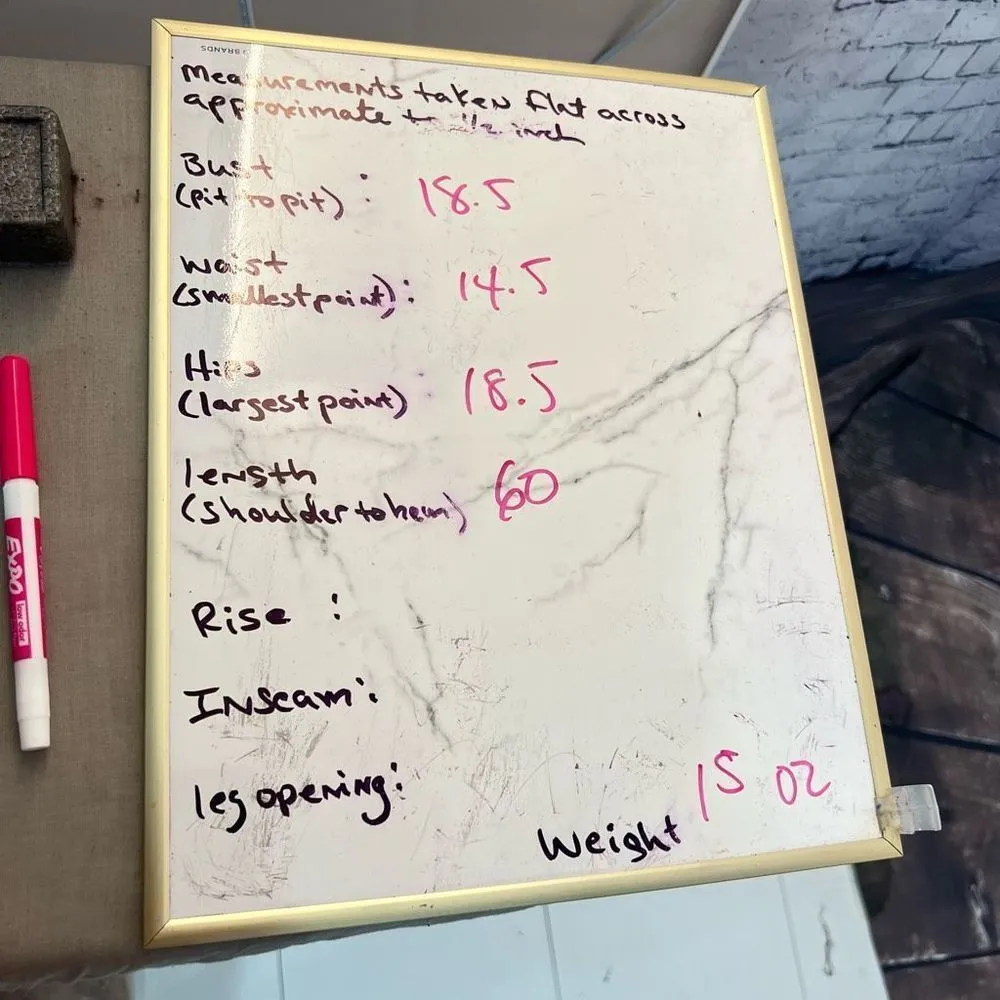 BRANDS
Measurements taken flat across
approximate to 1/2 inch
Bust
(pit to pit) : 18.5
Waist
(smallest point): 14.5
Hips
(largest point) 18.5
length
(shoulder to hem) 60
Rise :
Inseam:
leg opening:
15 oz
Weight
EXPO
low odor